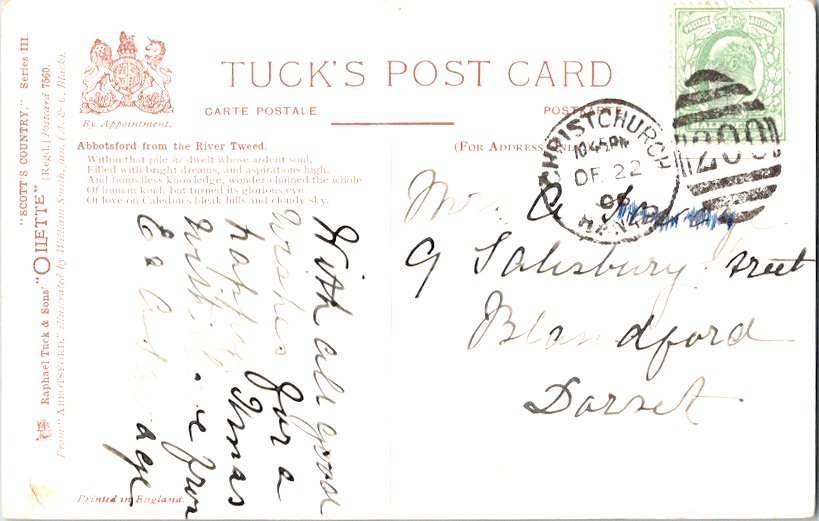 "SCOTT'S COUNTRY." Series III.
Raphael Tuck & Sons' "OILETTE" [Regd.] Postcard 7560.
From "ABBOTSFORD," Illustrated by William Smith, Jun. (A. & C. Black).
By Appointment.
TUCK'S POST CARD
CARTE POSTALE
POSTKARTE
Abbotsford from the River Tweed.
Within that pile he dwelt whose ardent soul,
Filled with bright dreams, and aspirations high,
And boundless knowledge, wonder chained the whole
Of human kind, but turned its glorious eye
Of love on Caledon's bleak hills and cloudy sky.
(For Address Only)
CHRISTCHURCH
10.45PM
DE 22
06
HANTS
200
POSTAGE REVENUE
HALF
With all good
wishes for a
happy Xmas
with love from
E & A
Mr A
9 Salisbury street
Blandford
Dorset
Printed in England.